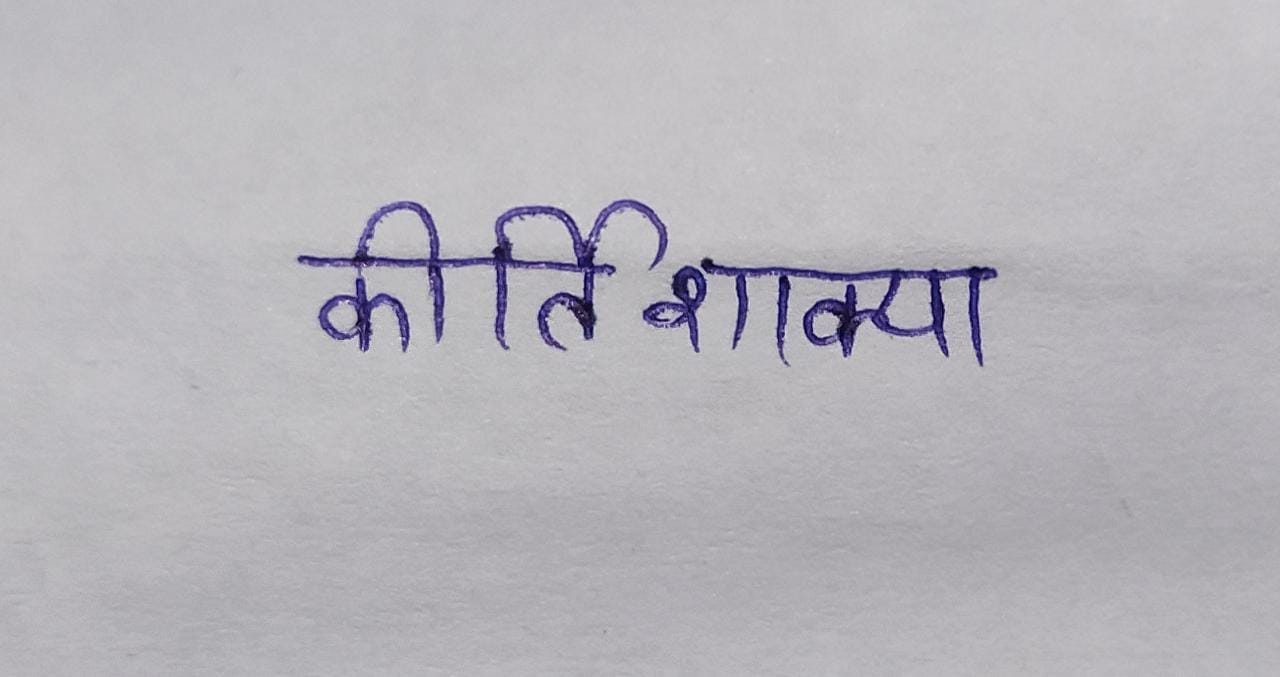 कीर्ति शाक्या